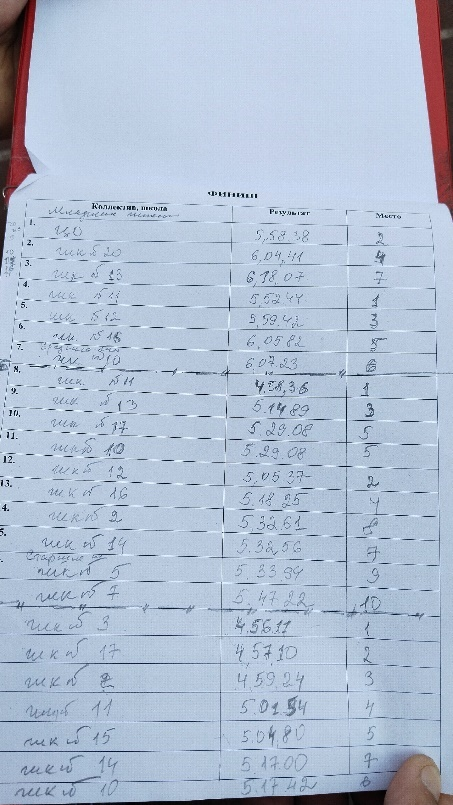 ФИНИШ
Коллектив, школа Результат Место
Младшая
1. ЦО 5,58.38 2
2. шк № 20 6,04,41 4
3. шк № 13 6,18,07 7
4. шк № 11 5,52 44 1
5. шк № 12 5,59.42 3
6. шк № 16 6.05 82 5
7. шк № 10 6.07.23 6
8. шк № 11 4,58,36 1
9. шк № 13 5.14 89 3
10. шк № 17 5.29.08 5
11. шк № 10 5.29.08 5
12. шк № 12 5,05 37 2
13. шк № 16 5.18 25 4
4. шк № 2 5.32.61 8
5. шк № 14 5.32.56 7
Старшие
шк № 5 5.33.94 9
шк № 7 5.47.22 10
шк № 3 4.56.11 1
шк № 17 4,57,10 2
шк № 4.59.24 3
шк № 11 5.01.54 4
шк № 15 5.04 80 5
шк № 14 5.17.00 7
шк № 10 5.17.42